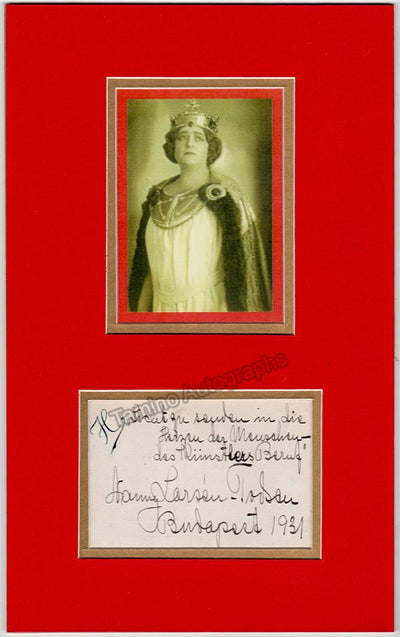 Tamino Autographs
"Licht zu senden in die
Herzen der Menschen –
des Künstlers Beruf"
Nanny Larsén-Todsen
Budapest 1931